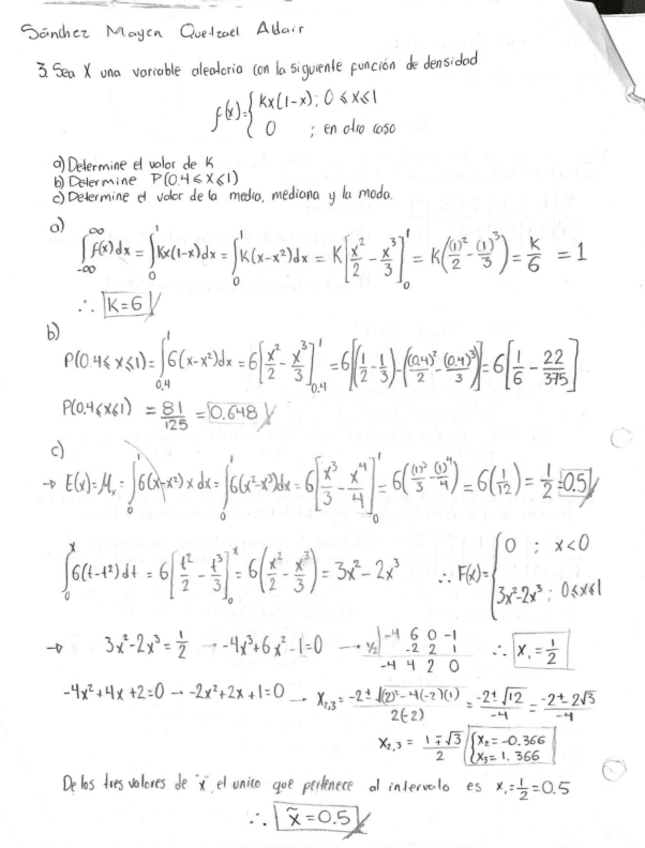 Sánchez Mayen Quetzael Adair
3. Sea X una variable aleatoria con la siguiente función de densidad
f(x)={Kx(1-x); 0≤x≤1
0 ; en otro caso
a) Determine el valor de K
b) Determine P(0.4≤X≤1)
c) Determine el valor de la media, mediana y la moda.
a)
∫_{-∞}^{∞} f(x)dx = ∫_0^1 Kx(1-x)dx = ∫_0^1 K(x-x²)dx = K[x²/2 - x³/3]_0^1 = K((1)²/2 - (1)³/3) = K/6 = 1
∴ K=6
b)
P(0.4≤x≤1) = ∫_{0.4}^1 6(x-x²)dx = 6[x²/2 - x³/3]_{0.4}^1 = 6[(1/2 - 1/3) - ((0.4)²/2 - (0.4)³/3)] = 6[1/6 - 22/375]
P(0.4≤x≤1) = 81/125 = 0.648
c)
→ E(x)=μₓ = ∫_0^1 6(x-x²)x dx = ∫_0^1 6(x²-x³)dx = 6[x³/3 - x⁴/4]_0^1 = 6((1)³/3 - (1)⁴/4) = 6(1/12) = 1/2 = 0.5
∫_0^x 6(t-t²)dt = 6[t²/2 - t³/3]_0^x = 6(x²/2 - x³/3) = 3x²-2x³ ∴ F(x)={0 ; x<0
3x²-2x³ ; 0≤x≤1
→ 3x²-2x³=1/2 → -4x³+6x²-1=0 → 1/2| -4 6 0 -1 ∴ x₁=1/2
-2 2 1
-4 4 2 0
-4x²+4x+2=0 → -2x²+2x+1=0 → x₂,₃ = (-2±√((2)²-4(-2)(1)))/(2(-2)) = (-2±√12)/(-4) = (-2±2√3)/(-4)
x₂,₃ = (1∓√3)/2 {x₂=-0.366
x₃=1.366
De los tres valores de "x", el unico que pertenece al intervalo es x₁=1/2=0.5
∴ x̃=0.5